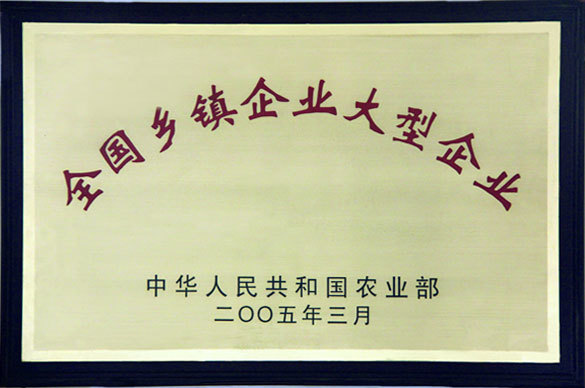 全国乡镇企业大型企业
中华人民共和国农业部
二〇〇五年三月